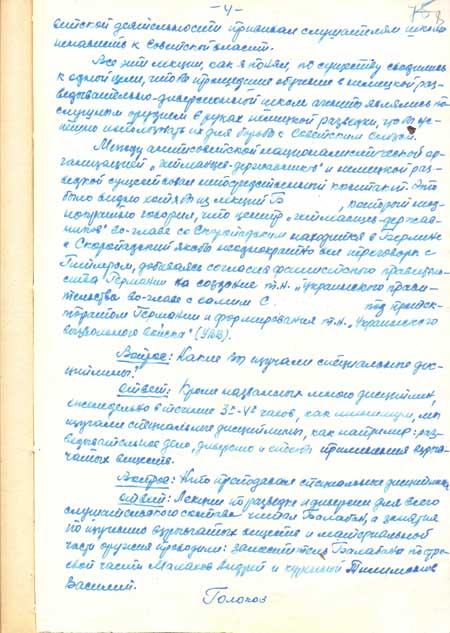 - 4 -
ветской деятельности прививал слушателям школы
ненависть к Советской власти.
Все эти лекции, как я понял, по существу сводились
к одной цели, чтобы прошедшие обучение в немецкой раз-
ведывательно-диверсионной школе агенты являлись по-
слушным орудием в руках немецкой разведки, чтобы ус-
пешно использовать их для борьбы с Советским Союзом.
Между антисоветской националистической ор-
ганизацией „гетманцев-державников" и немецкой раз-
ведкой существовал непосредственный контакт. Это
было видно хотя бы из лекций Б , который неод-
нократно говорил, что центр „гетманцев-держав-
ников" во-главе со Скоропадским находится в Берлине
и Скоропадский якобы неоднократно вел переговоры с
Гитлером, добиваясь согласия фашистского правитель-
ства Германии на создание т.н. „Украинского прави-
тельства во-главе с самим С под протек-
торатом Германии и формирования т.н. „Украинского
вызвольного войска" (УВВ).
Вопрос: Какие вы изучали специальные дис-
циплины?
Ответ: Кроме названных мною дисциплин,
ежедневно в течение 3х-4х часов, как минимум, мы
изучали специальные дисциплины, как например: раз-
ведывательное дело, диверсию и способы применения взрыв-
чатых веществ.
Вопрос: Кто преподавал специальные дисциплины?
Ответ: Лекции по разведке и диверсии для всего
слушательского состава читал Балабан, а занятия
по изучению взрывчатых веществ и материальной
части оружия проводили: заместитель Балабана по стро-
евой части Малахов Андрей и куренной
Василий.
Голохов